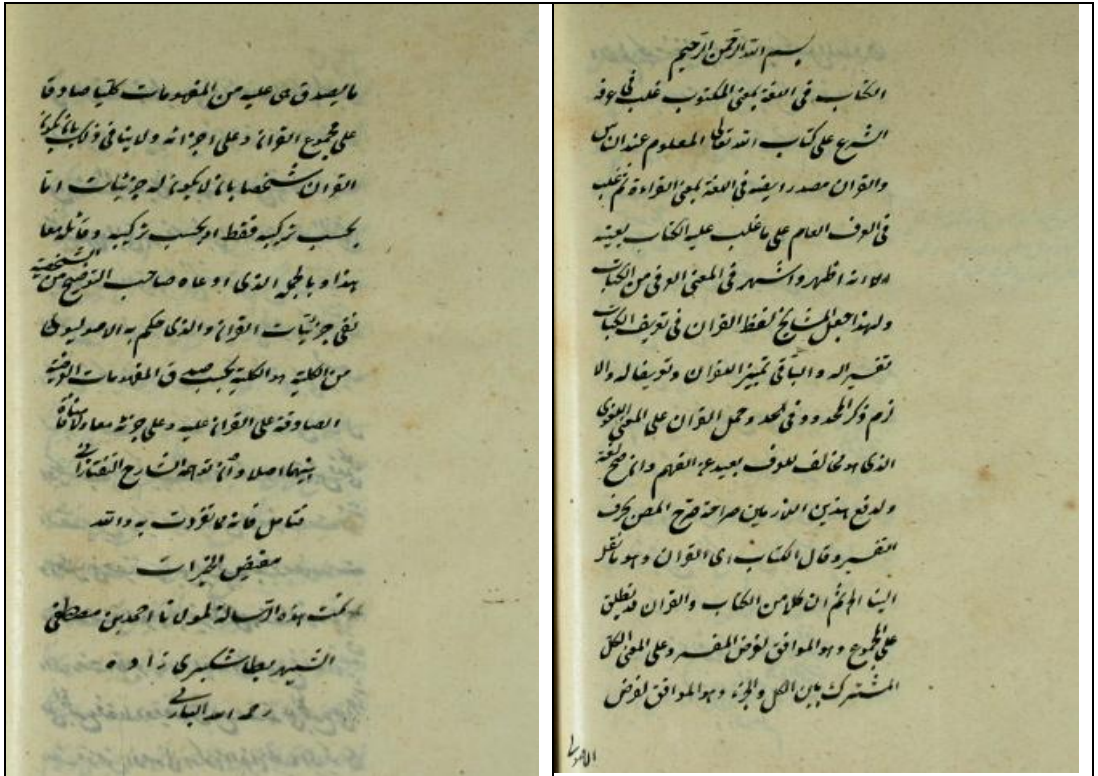 بسم الله الرحمن الرحيم
الكتاب في اللغة بمعنى المكتوب غلب في عرف
الشرع على كتاب الله تعالى المعلوم عند الناس
والقران مصدر ايضا في اللغة بمعنى القراءة ثم غلب
في العرف العام على ما غلب عليه الكتاب بعينه
الا انه اظهر واشهر في المعنى العرفي من الكتاب
ولهذا جعل المشايخ لفظ القران في تعريف الكتاب
تفسيرا له والباقي تمييز القران وتعريفا له والا
لزم ذكر المحدود في الحد وحمل القران على المعنى اللغوي
الذي هو مخالف للعرف بعيد عن الفهم وان صح لغة
ولدفع هذين اللازمين صراحة صرح المص بحرف
التفسير وقال الكتاب اى القران وهو ما نقل
الينا الخ ثم ان كلا من الكتاب والقران قد يطلق
على المجموع وهو الموافق لغرض المفسر وعلى المعنى الكلي
المشترك بين الكل والجزء وهو الموافق لغرض
الاصولي
ما يصدق هي عليه من المفهومات كليا صادقا
على مجموع القران وعلى اجزائه ولا ينافي ذلك بان يكون
القران شخصا بان لا يكون له جزئيات اما
بحسب تركيبه فقط او بحسب تركيبه وقائله معا
هذا وبالجملة الذي ادعاه صاحب التوضيح من الشخصية
نفي جزئيات القران والذي حكم به الاصوليون
من الكلية هو الكلية بحسب صدق المفهومات العرضية
الصادقة على القران عليه وعلى جزئه معا ولا منافاة
بينهما اصلا وان توهمه الشارح التفتازاني
فتامل فانه مما تفردت به والله
مفيض الخيرات
تمت هذه الرسالة لمولانا احمد بن مصطفى
الشهير بطاشكبرى زاده
رحمه الله الباري